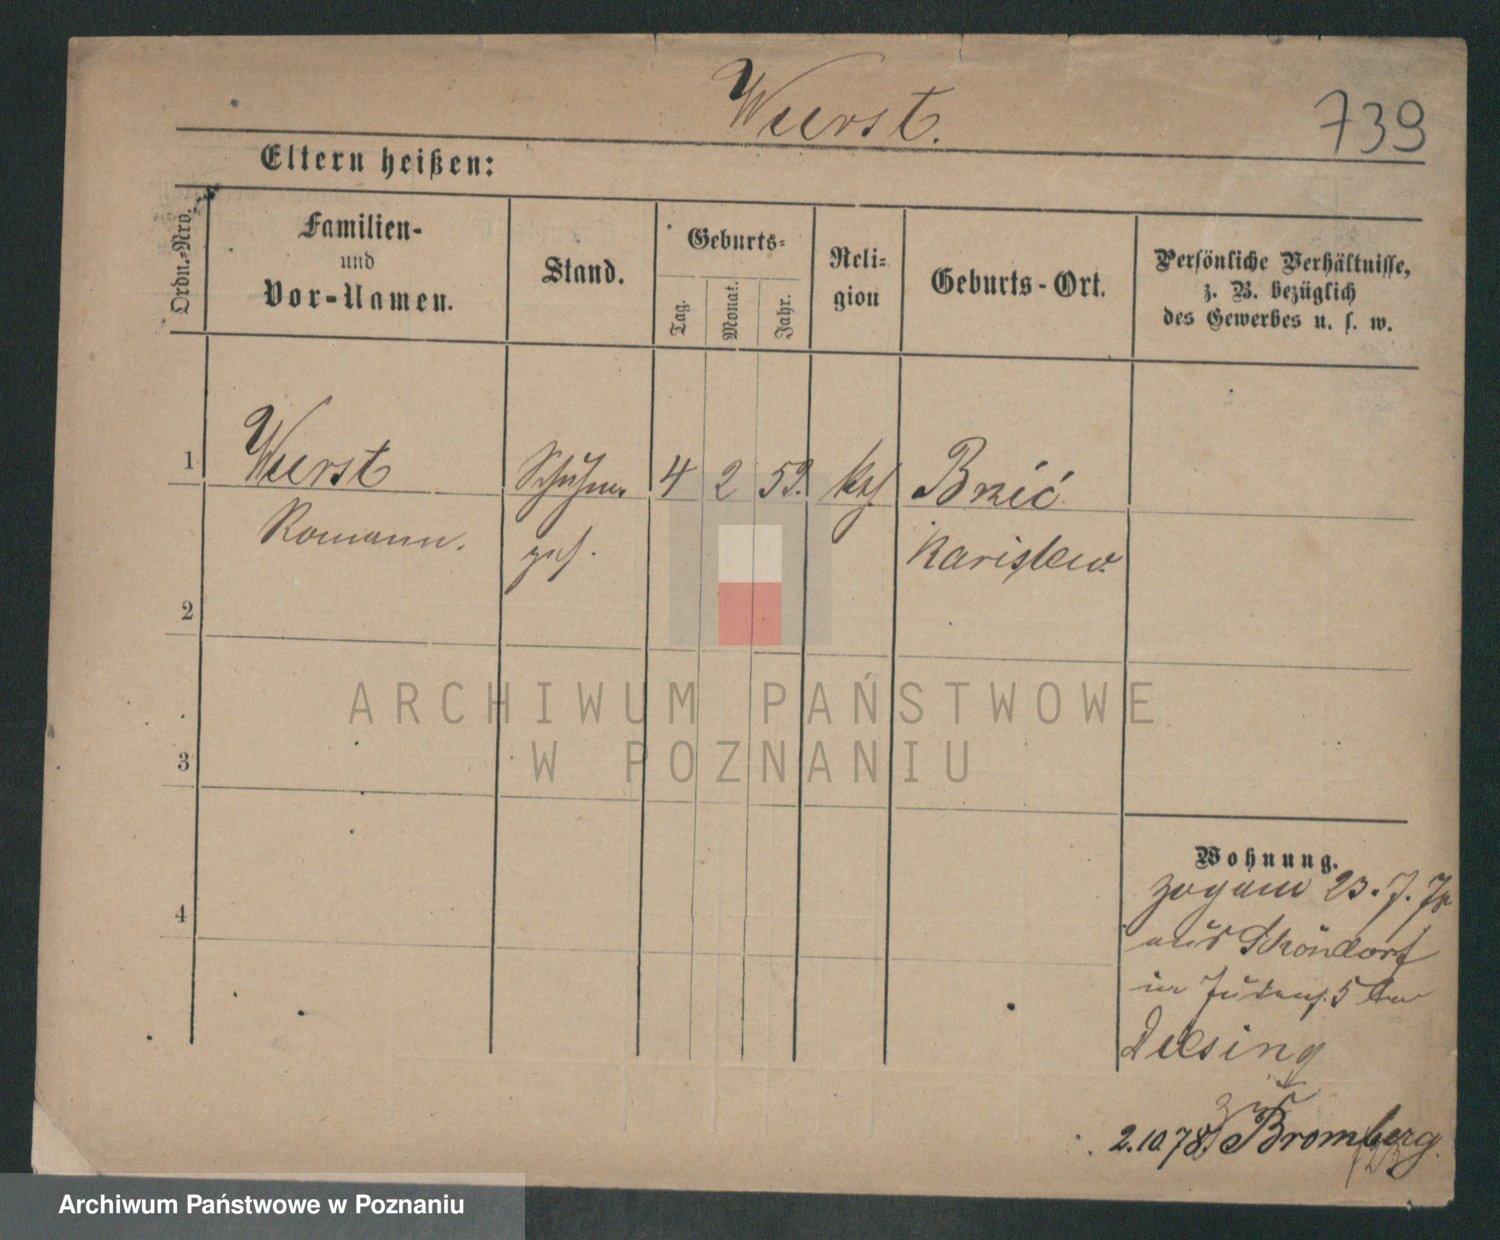 Wierst.
739
Eltern heißen:
Ordn.-Nro.
Familien-
und
Vor-Namen.
Stand.
Geburts-
Tag.
Monat.
Jahr.
Reli-
gion
Geburts-Ort.
Persönliche Verhältnisse,
z. B. bezüglich
des Gewerbes u. s. w.
1
Wierst
Schuhm.
4
2
59.
kth.
Romann.
2
3
4
Wohnung.
23. 7. 78
aus Schöndorf
in
5
2.10.78. Bromberg.
ARCHIWUM PAŃSTWOWE
W POZNANIU
Archiwum Państwowe w Poznaniu